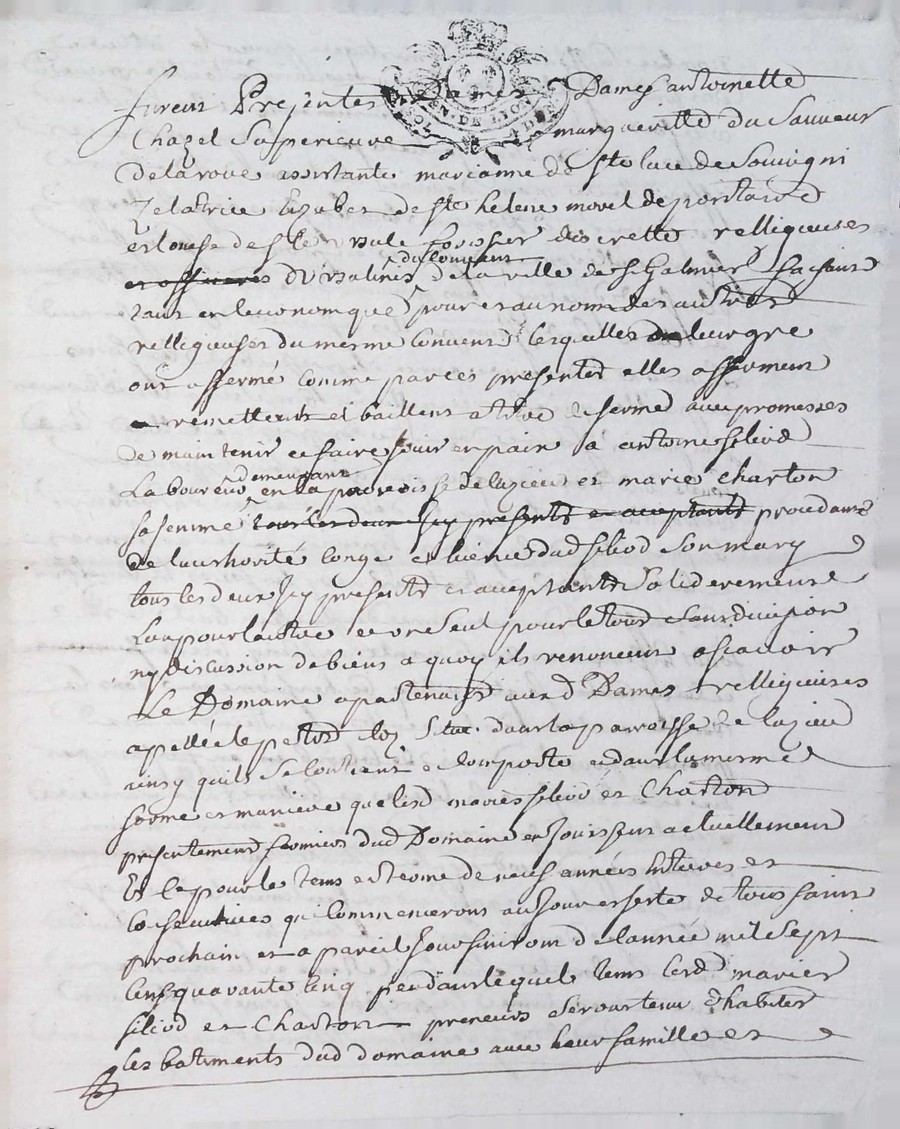 furent Presentes Dames Dames antoinette
GEN. DE LION
Chazel Superieure margueritte du Sauveur
Delaroue assistante marianne de Ste luce de Souvigni
Zelatrice Elizabet de Ste helene morel
et louise de Ste Ursule forissier discrette relligieuses
du Couvent
et officieres D'Ursulines de la ville de St Galmier faisant
tant en leur nom que pour et au nom des autres
relligieuses du mesme Couvent lesquelles de leur gre
ont affermé comme par ces presentes elles afferment
remettent et baillent a titre de ferme avec promesses
de maintenir et faire jouir en paix a antoine filiod
demeurant
Laboureur en la parroisse de luzieu et marie charton
sa femme tous les deux Icy presents et acceptants procedant
de lauthorité conge et licence dud filiod son mary
tous les deux Icy presents et acceptants Soliderement
Lun pour lautre et un Seul pour le tout sans division
ny discussion de biens a quoy ils renoncent a scavoir
Le Domaine apartenant auxd Dames relligieuses
apellé le petit Situé dans la parroisse de luzieu
ainsy quil Se Contient et Comporte et dans la mesme
forme et maniere que lesd mariés filiod et Charton
presentement fermiers dud Domaine en Jouissent actuellement
Et ce pour le tems et terme de neuf années Entieres et
Consecutives qui Commenceront au Jour et feste de tous saints
prochain et a pareil Jour finiront de lannée mil Sept
Cens quarante Cinq pendant lequel tems lesd mariés
filiod et Charton preneurs Seront tenu d'habiter
les batiments dud domaine avec leur famille et